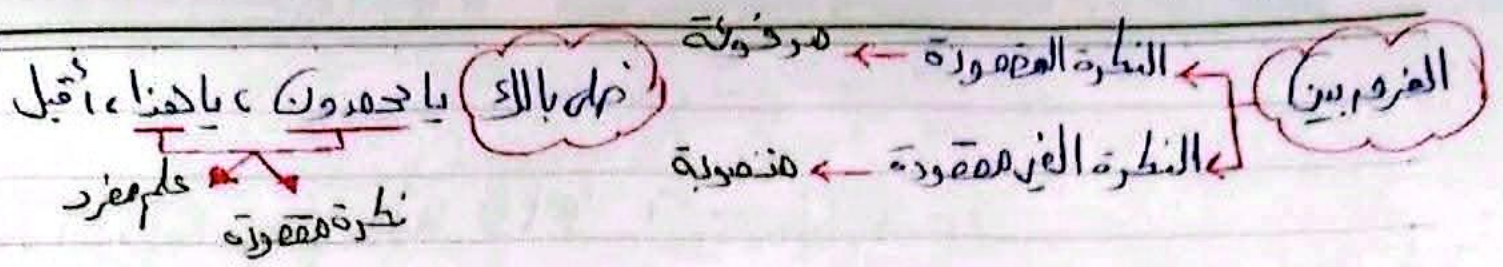 الفرق بين
النكرة المقصودة ← مرفوعة
النكرة الغير مقصودة ← منصوبة
خلى بالك
يا محمدون ، يا هذا ، أقبل
علم مفرد
نكرة مقصودة